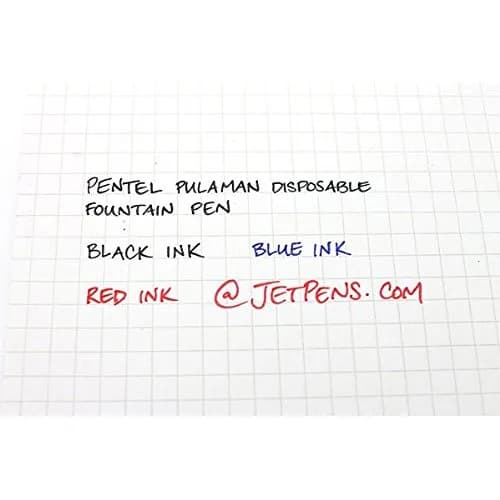 PENTEL PULAMAN DISPOSABLE
FOUNTAIN PEN
BLACK INK BLUE INK
RED INK @ JETPENS.COM